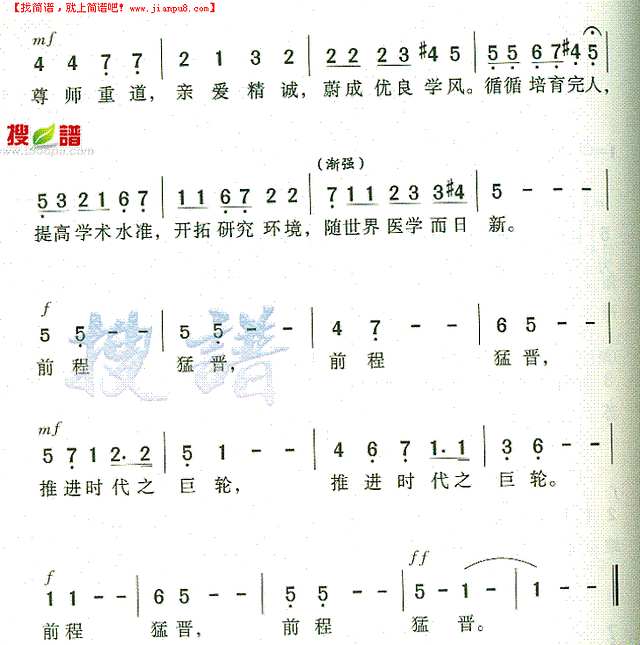 【找简谱，就上简谱吧！www.jianpu8.com】
mf
4 4 7 7 | 2 1 3 2 | 2 2 2 3 #4 5 | 5 5 6 7 #4 5 |
尊师重道，亲爱精诚，蔚成优良学风。循循培育完人，
搜谱
(渐强)
5 3 2 1 6 7 | 1 1 6 7 2 2 | 7 1 1 2 3 3 #4 | 5 - - - |
提高学术水准，开拓研究环境，随世界医学而日新。
f
5 5 - - | 5 5 - - | 4 7 - - | 6 5 - - |
搜谱
前程猛晋，前程猛晋，
mf
5 7 1 2· 2 | 5 1 - - | 4 6 7 1· 1 | 3 6 - - |
推进时代之巨轮，推进时代之巨轮。
f ff
1 1 - - | 6 5 - - | 5 5 - - | 5 - 1 - | 1 - - ‖
前程猛晋，前程猛晋。